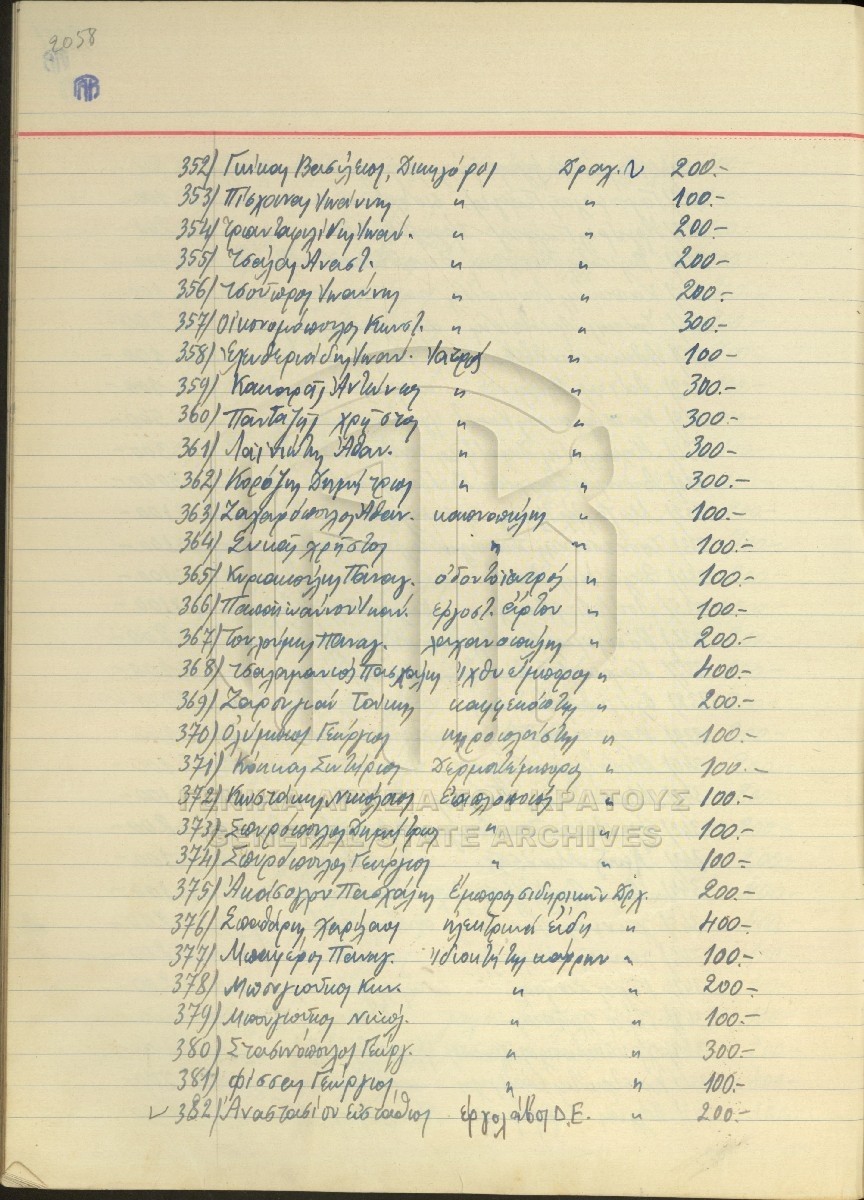 2058
352) Γκίκας Βασίλειος, Δικηγόρος Δραχ. 200.-
353) Πίσχινας Ιωάννης " " 100.-
354) Τριανταφυλλίδης Ιωάν. " " 200.-
355) Τσάλας Αναστ. " " 200.-
356) Τσούπρος Ιωάννης " " 200.-
357) Οικονομόπουλος Κωνστ. " " 300.-
358) Ελευθεριάδης Ιωάν. Ιατρός " 100-
359) Αντώνιος " " 300.-
360) Πανταζής Χρήστος " " 300.-
361) Αθαν. " " 300-
362) Κοράζης Δημήτριος " " 300.-
363) Ζαχαρόπουλος Αθαν. καπνοπώλης " 100.-
364) Συκάς Χρήστος " " 100.-
365) Κυριακούλης Παναγ. οδοντοϊατρός " 100.-
366) Παπαϊωάννου Ιωάν. εργοστ. άρτου " 100.-
367) Τουλούμης Παναγ. λαχανοπώλης " 200.-
368) Τσαλαμανιός Πασχάλης ιχθυέμπορος " 400.-
369) " 200.-
370) Ολύμπιος Γεώργιος κηροπλάστης " 100.-
371) Κόκκας Σωτήριος Δερματέμπορος " 100.-
372) Κωστάκης Νικόλαος Επιπλοποιός " 100.-
373) Σπυρόπουλος Δημήτριος " " 100.-
374) Σπυρόπουλος Γεώργιος " " 100-
375) Πασχάλης Έμπορος σιδηρικών Δρχ. 200.-
376) Σπαθάρης Χαρίλαος ηλεκτρικά είδη " 400-
377) Παναγ. Ιδιοκτήτης κάρρων " 100.-
378) Μπουγιούκος Κων. " " 200.-
379) Μπουγιούκος Νικόλ. " " 100.-
380) Στασινόπουλος Γεώργ. " " 300.-
381) Φίσσας Γεώργιος " " 100.-
382) Αναστασίου Ευστάθιος εργολάβος Δ.Ε. " 200.-
ΓΕΝΙΚΑ ΑΡΧΕΙΑ ΤΟΥ ΚΡΑΤΟΥΣ
GENERAL STATE ARCHIVES